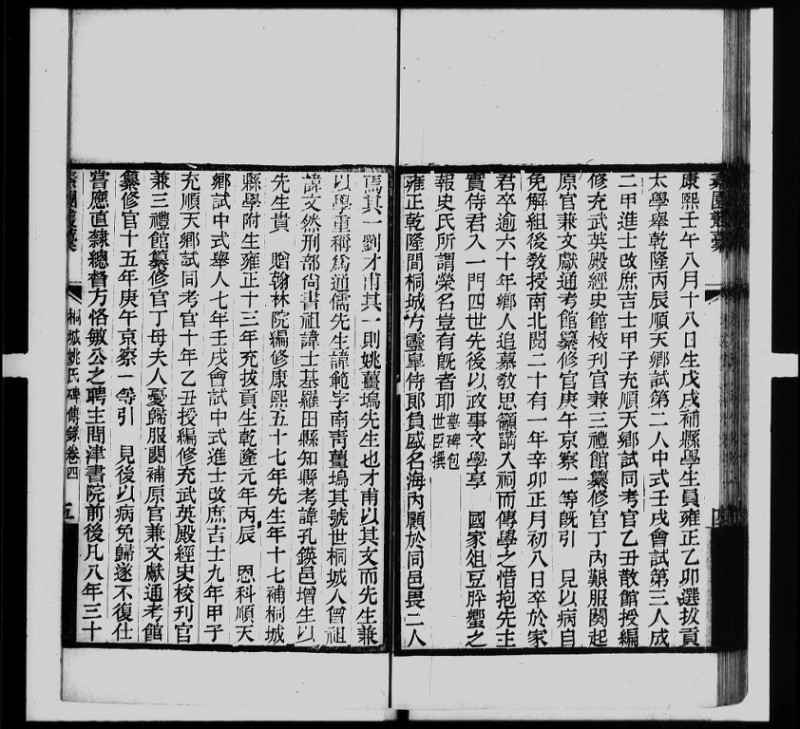 康熙壬午八月十八日生戊戌補縣學生員雍正乙卯選拔貢
太學舉乾隆丙辰順天鄉試第二人中式壬戌會試第三人成
二甲進士改庶吉士甲子充順天鄉試同考官乙丑散館授編
修充武英殿經史館校刊官兼三禮館纂修官丁內艱服闋起
原官兼文獻通考館纂修官庚午京察一等旣引　見以病自
免解組後敎授南北閱二十有一年辛卯正月初八日卒於家
君卒逾六十年鄉人追慕敎思籲請入祠而傳學之惜抱先生
實侍君入一門四世先後以政事文學享　國家俎豆肸蠁之
報史氏所謂榮名豈有旣者耶墓碑包世臣撰
雍正乾隆間桐城方靈皋侍郎負盛名海內顧於同邑畏二人
焉其一劉才甫其一則姚薑塢先生也才甫以其文而先生兼
以學重稱爲通儒先生諱範字南靑薑塢其號世桐城人曾祖
諱文然刑部尙書祖諱士基羅田縣知縣考諱孔鍈邑增生以
先生貴　贈翰林院編修康熙五十七年先生年十七補桐城
縣學附生雍正十三年充拔貢生乾隆元年丙辰　恩科順天
鄉試中式舉人七年壬戌會試中式進士改庶吉士九年甲子
充順天鄉試同考官十年乙丑授編修充武英殿經史校刊官
兼三禮館纂修官丁母夫人憂歸服闋補原官兼文獻通考館
纂修官十五年庚午京察一等引　見後以病免歸遂不復仕
嘗應直隸總督方恪敏公之聘主問津書院前後凡八年三十
桐城姚氏碑傳錄卷四　五